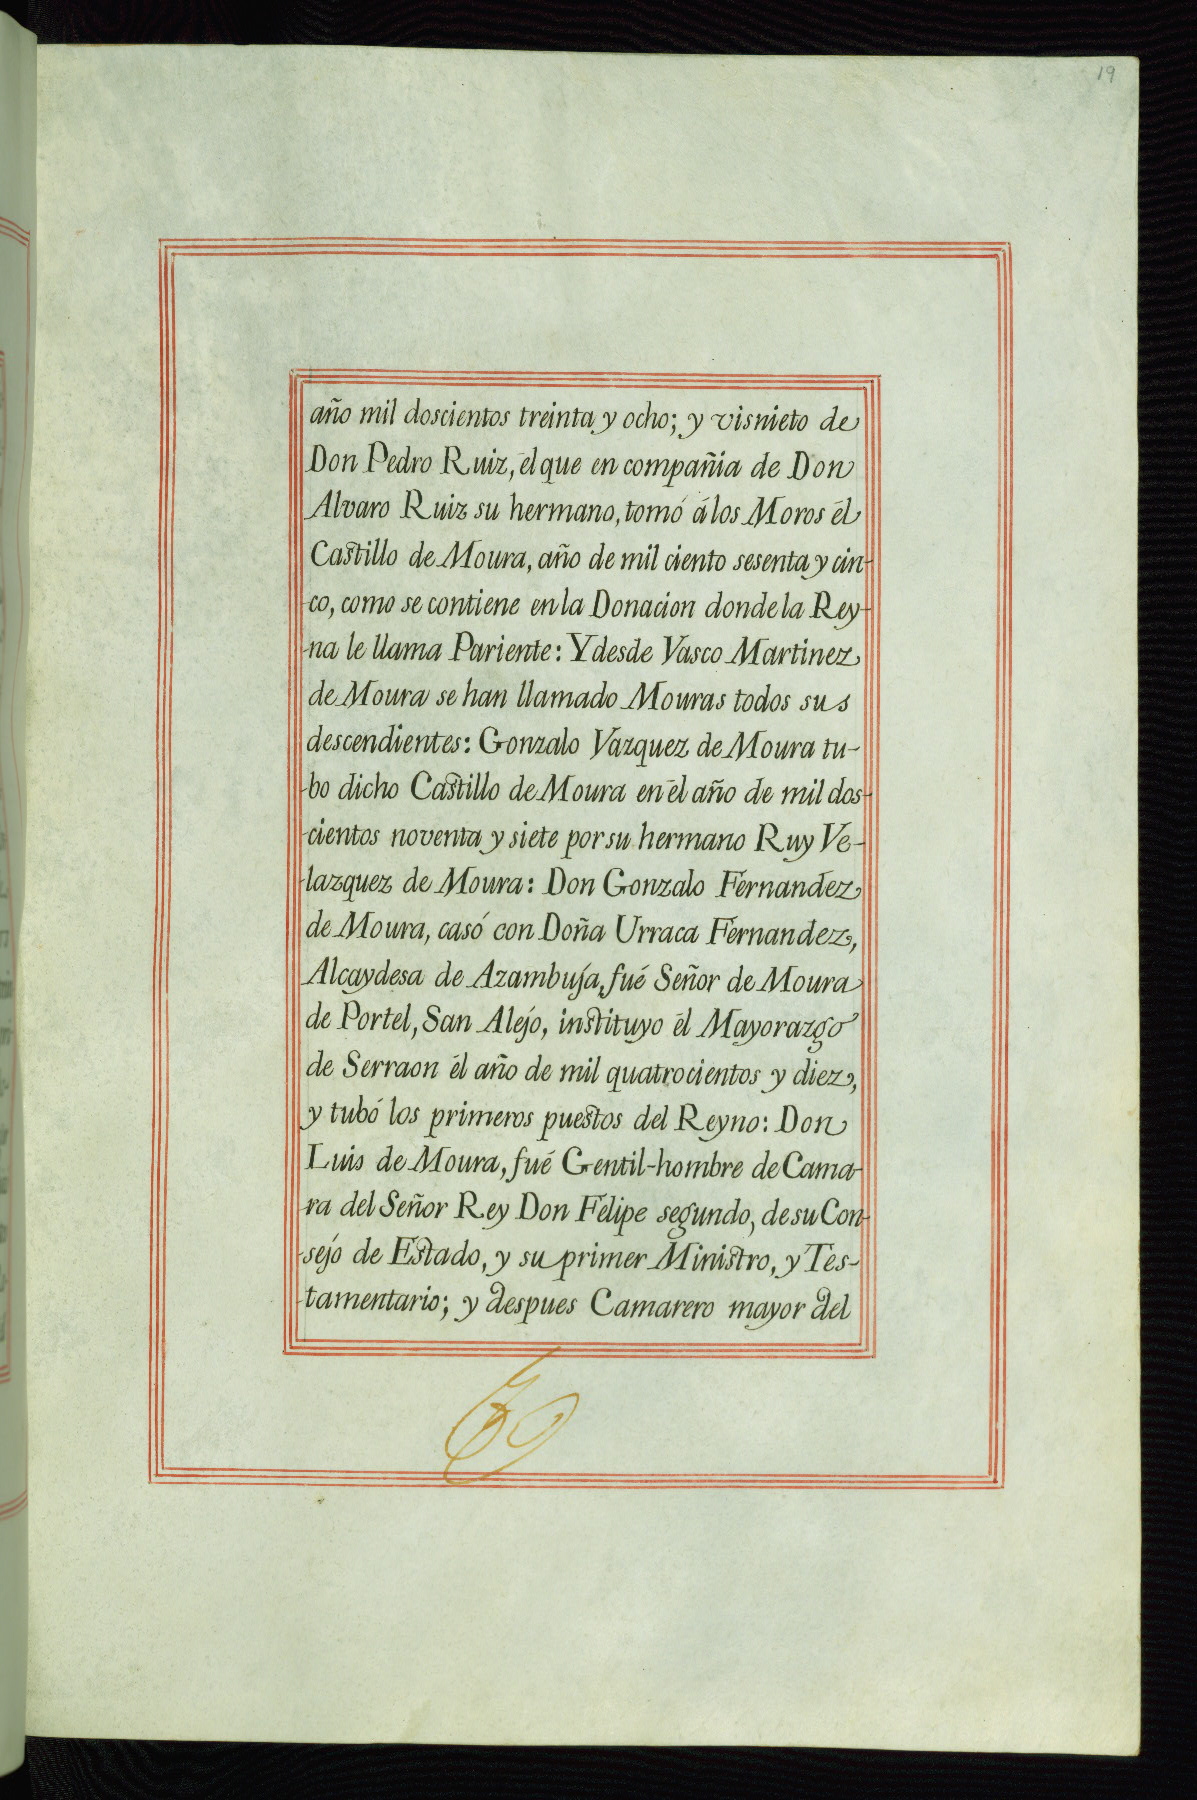 19
año mil doscientos treinta y ocho; y visnieto de
Don Pedro Ruiz, él que en compañia de Don
Alvaro Ruiz su hermano, tomó á los Moros él
Castillo de Moura, año de mil ciento sesenta y cin-
co, como se contiene en la Donacion donde la Rey-
na le llama Pariente: Y desde Vasco Martinez
de Moura se han llamado Mouras todos sus
descendientes: Gonzalo Vazquez de Moura tu-
bo dicho Castillo de Moura en él año de mil dos-
cientos noventa y siete por su hermano Ruy Ve-
lazquez de Moura: Don Gonzalo Fernandez
de Moura, casó con Doña Urraca Fernandez,
Alcaydesa de Azambuja, fué Señor de Moura
de Portel, San Alejo, instituyo él Mayorazgo
de Serraon él año de mil quatrocientos y diez,
y tubó los primeros puestos del Reyno: Don
Luis de Moura, fué Gentil-hombre de Cama-
ra del Señor Rey Don Felipe segundo, de su Con-
sejo de Estado, y su primer Ministro, y Tes-
tamentario; y despues Camarero mayor del